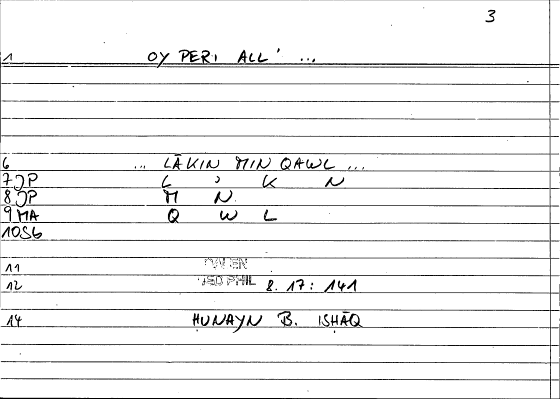 3
1 OY PERI ALL' ...
6 ... LĀKIN MIN QAWL ...
7 JP L ' K N
8 JP M N
9 MA Q W L
10 SG
11
12 8. 17: 141
14 ḤUNAYN B. ISḤĀQ